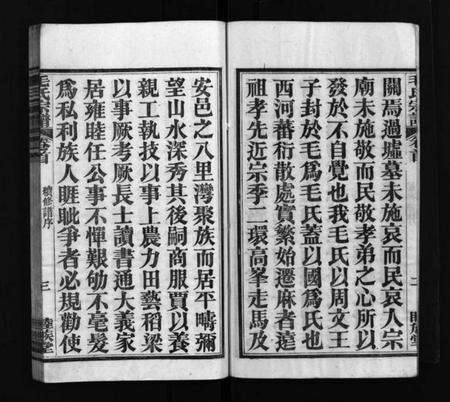 關焉過墟墓未施哀而民哀人宗
廟未施敬而民敬孝弟之心所以
發於不自覺也我毛氏以周文王
子封於毛爲毛氏蓋以國爲氏也
西河蕃衍散處實繁始遷麻者達
祖孝先近宗季二環高峯走馬及
毛氏宗譜
卷首
二
睦族堂
安邑之八里灣聚族而居平疇彌
望山水深秀其後嗣商服賈以養
親工執技以事上農力田藝稻梁
以事厥考厥長士讀書通大義家
居雍睦任公事不憚艱劬不毫髮
爲私利族人睚眦爭者必規勸使
毛氏宗譜
卷首
續修譜序
三
睦族堂